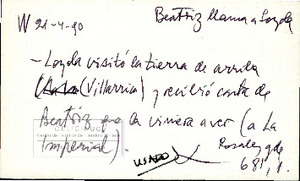 W 21-4-90
Beatriz llama a Loyola
- Loyola visitó la tierra de arriba
(Villarrica) y recibió carta de
Beatriz que la viniera a ver (a La
Imperial).
Rosales, g de
681, 1.
USADO